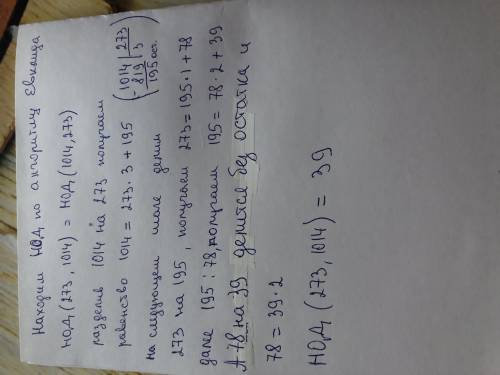 Находим НОД по алгоритму Евклида
НОД (273, 1014) = НОД (1014, 273)
разделив 1014 на 273 получаем
равенство 1014 = 273 · 3 + 195 (1014 | 273
- 819 | 3
195 ост.)
на следующем шаге делим
273 на 195, получаем 273 = 195 · 1 + 78
далее 195 : 78, получаем 195 = 78 · 2 + 39
А 78 на 39 делится без остатка и
78 = 39 · 2
НОД (273, 1014) = 39